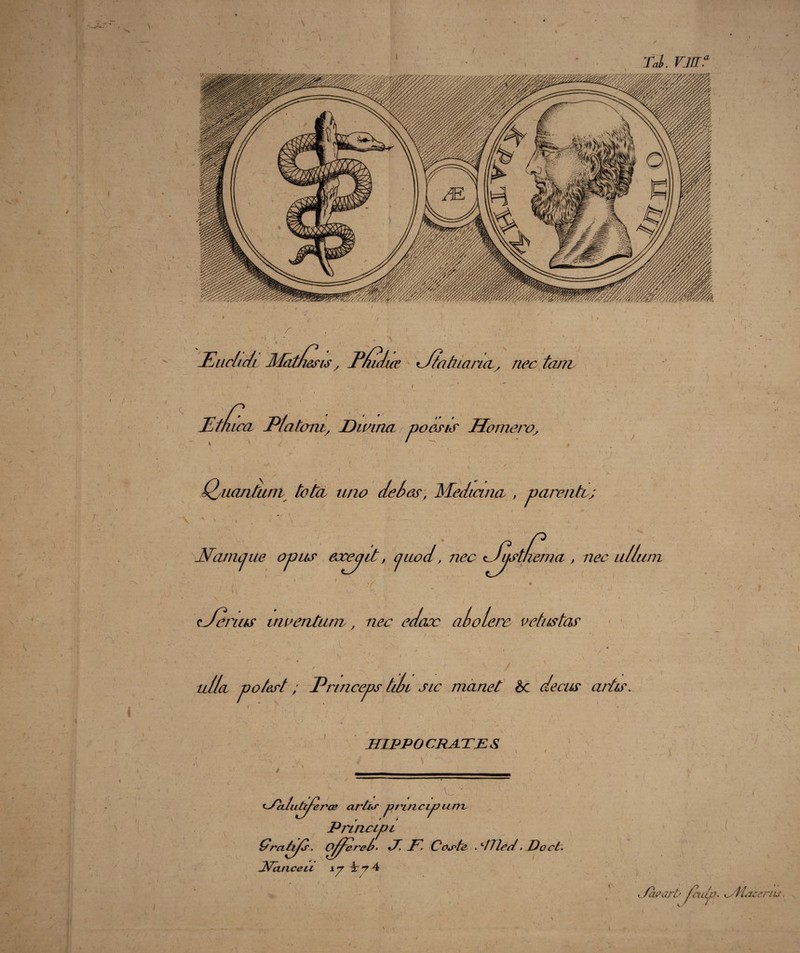 Tab. VIII.ª
ΙΠΠΟ
ΚΡΑΤΗΣ
Æ
Euclidi Mathesis, Phidiæ Statuaria, nec tam
Ethica Platoni, Divina poësis Homero,
Quantùm tota uno debes, Medicina, parenti;
Namque opus exegit, quod, nec Systhema, nec ullum
Serius inventum, nec edax abolere vetustas
ulla potest; Princeps tibi sic manet & decus artis.
HIPPOCRATES
Salutiferæ artis principum
Principi
Offereb. J. F. Coste Med. Doct.
Nanceii
Savart Sculp.